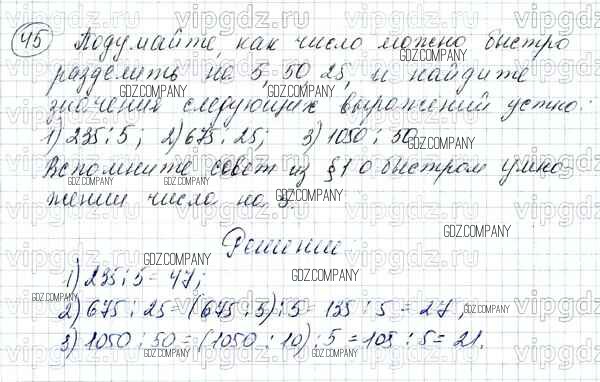 45 Подумайте, как число можно быстро
разделить на 5, 50 25, и найдите
значения следующих выражений устно:
1) 235 : 5; 2) 675 : 25; 3) 1050 : 50
Вспомните совет из §1 о быстром умно
жении числа на 5.
Решение:
1) 235 : 5 = 47;
2) 675 : 25 = (675 : 5) : 5 = 135 : 5 = 27;
3) 1050 : 50 = (1050 : 10) : 5 = 105 : 5 = 21.
vipgdz.ru
GDZ.COMPANY